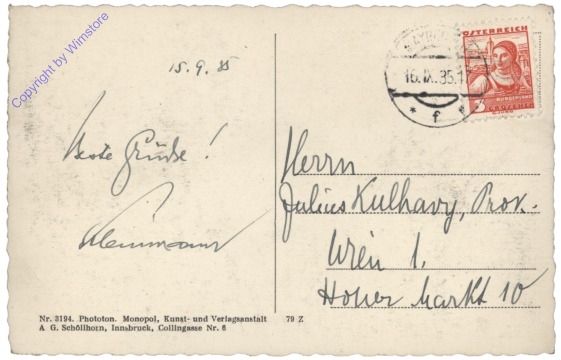 Copyright by Wimstore
15. 9. 35
Beste Grüße!
ÖSTERREICH
BURGENLAND
3 GROSCHEN
16.IX.35.17
* f *
Herrn
Julius Kulhavy, Prov.
Wien 1.
Hoher Markt 10
Nr. 3194. Phototon. Monopol, Kunst- und Verlagsanstalt 79 Z
A G. Schöllhorn, Innsbruck, Collingasse Nr. 6